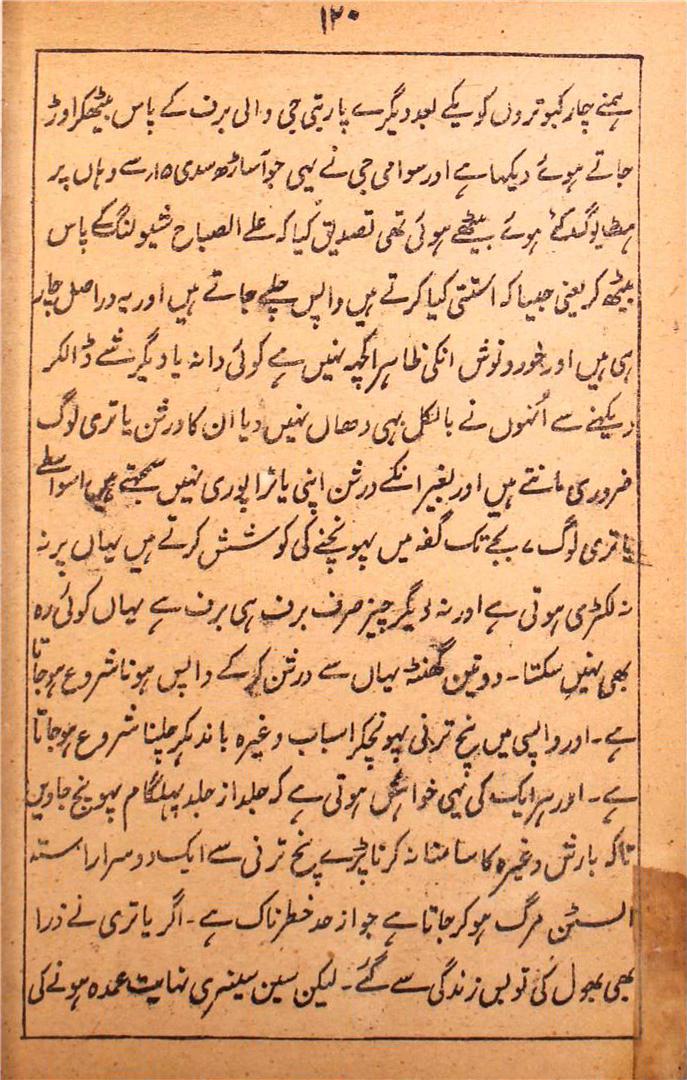 ۱۲۰
ہمنے چار کبوتروں کو یکے بعد دیگرے پاربتی جی والی برف کے پاس بیٹھکر اوڑ
جاتے ہوئے دیکہا ہے اور سوامی جی نے یہی جو آساڑھ سدی ۱۵ سے وہاں پر
ہوئے بیٹھے ہوئی تھی تصدیق کیا کہ علے الصباح شیولنگ کے پاس
بیٹھ کر یعنی جیسا کہ استتی کیا کرتے ہیں واپس چلے جاتے ہیں اور یہ دراصل چار
ہی ہیں اور خورونوش انکی ظاہرا کچہہ نہیں ہے کوئی دانہ یا دیگر شے ڈالکر
دیکہنے سے اُنہوں نے بالکل بہی دھاں نہیں دیا ان کا درشن یاتری لوگ
ضروری مانتے ہیں اور بغیر انکے درشن اپنی یاترا پوری نہیں سمجھتے ہیں اسواسطے
یاتری لوگ ۷ بجے تک گفہ میں پہونچنے کی کوشش کرتے ہیں یہاں پر نہ
نہ لکڑی ہوتی ہے اور نہ دیگر چیز صرف برف ہی برف ہے یہاں کوئی رہ
بھی نہیں سکتا۔ دو تین گھنٹہ یہاں سے درشن کر کے واپس ہونا شروع ہوجاتا
ہے۔ اور واپسی میں پنج ترنی پہونچکر اسباب وغیرہ باندہکر چلنا شروع ہوجاتا
ہے۔ اور ہر ایک کی یہی خواہش ہوتی ہے کہ جلد از جلد پہلگام پہونچ جاویں
تاکہ بارش وغیرہ کا سامنا نہ کرنا پڑے پنج ترنی سے ایک دوسرا راستہ
استن مرگ ہو کر جاتا ہے جو از حد خطرناک ہے۔ اگر یاتری نے ذرا
بھی بھول کی تو بس زندگی سے گئے۔ لیکن سین سینری نہایت عمدہ ہونے کی